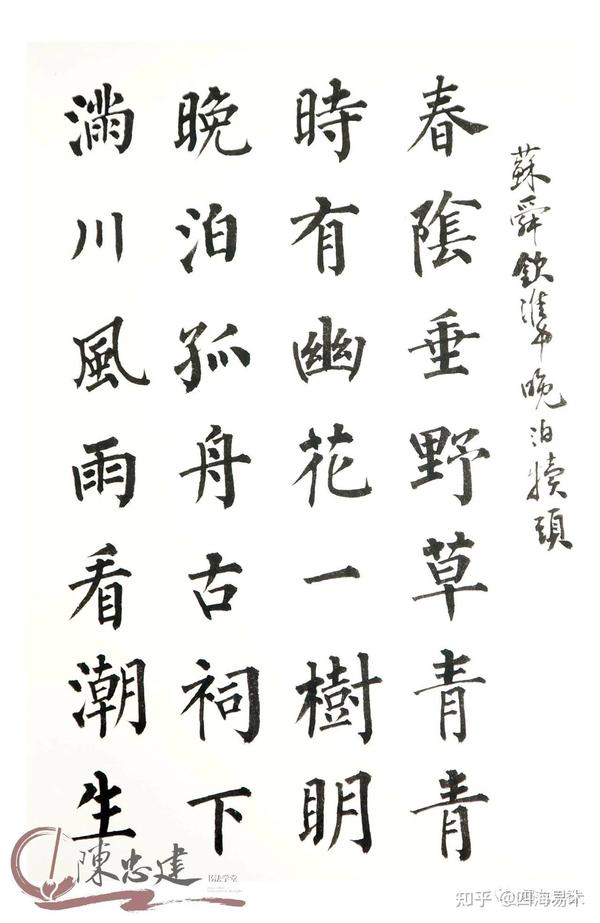 蘇舜欽淮中晚泊犢頭
春陰垂野草青青
時有幽花一樹明
晚泊孤舟古祠下
滿川風雨看潮生
陳忠建
书法学堂
知乎 @四海易木